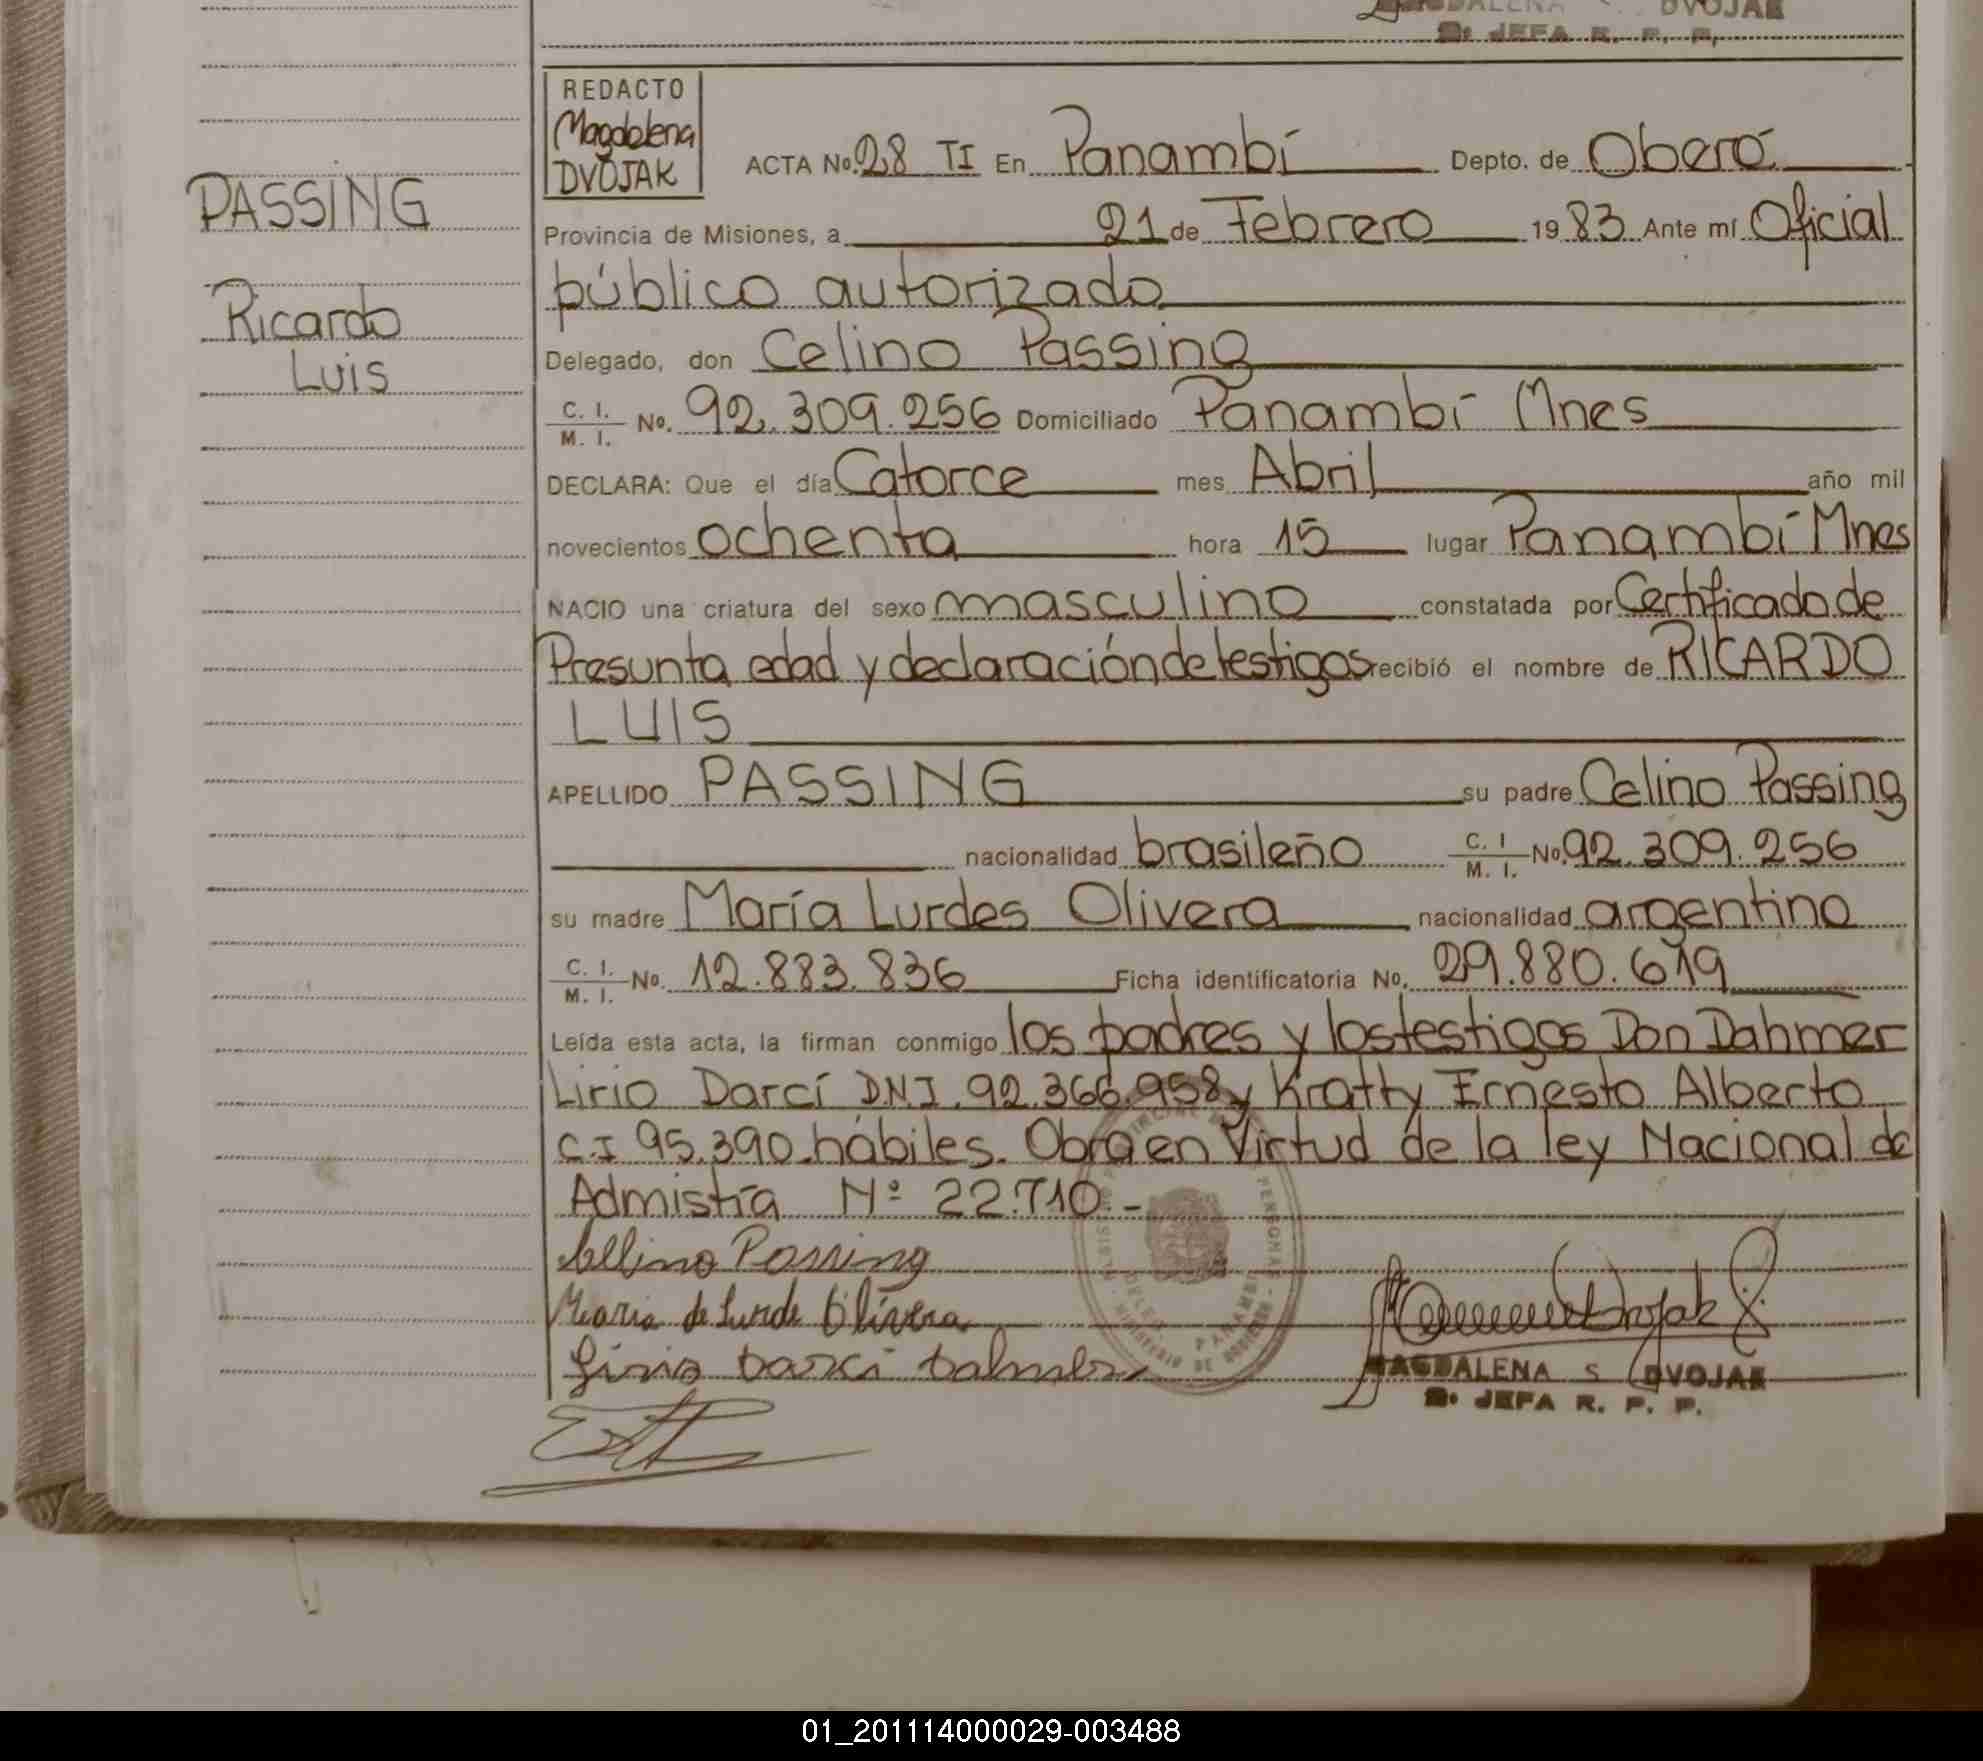 MAGDALENA S. DVOJAK
2º JEFA R. P. P.
REDACTO
Magdalena
DVOJAK
ACTA No. 28 TI En Panambí Depto. de Oberá
PASSING
Provincia de Misiones, a 21 de Febrero 1983 Ante mí Oficial
público autorizado
Ricardo
Luis
Delegado, don Celino Passing
C. I. / M. I. No. 92.309.256 Domiciliado Panambí Mnes
DECLARA: Que el día Catorce mes Abril año mil
novecientos ochenta hora 15 lugar Panambí Mnes
NACIO una criatura del sexo masculino constatada por Certificado de
Presunta edad y declaración de testigos recibió el nombre de RICARDO
LUIS
APELLIDO PASSING su padre Celino Passing
nacionalidad brasileño C. I / M. I. No. 92.309.256
su madre María Lurdes Olivera nacionalidad argentino
C. I. / M. I. No. 12.883.836 Ficha identificatoria No. 29.880.619
Leída esta acta, la firman conmigo los padres y los testigos Don Dahmer
Lirio Darcí D.N.I. 92.366.958 y Kratty Ernesto Alberto
C.I 95.390 hábiles. Obra en Virtud de la ley Nacional de
Admistía Nº 22.710.-
Cellino Passing
Maria de Lurde Olivera
Lirio Darci Dahmer
MAGDALENA S. DVOJAK
2º JEFA R. P. P.
01_201114000029-003488